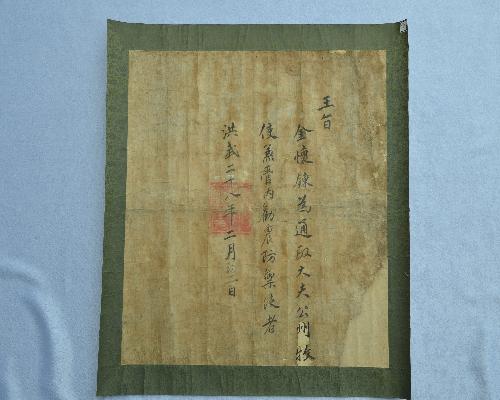 王旨
金懷鍊為通政大夫公州牧
使兼管內勸農防禦使者
洪武二十八年二月初二日